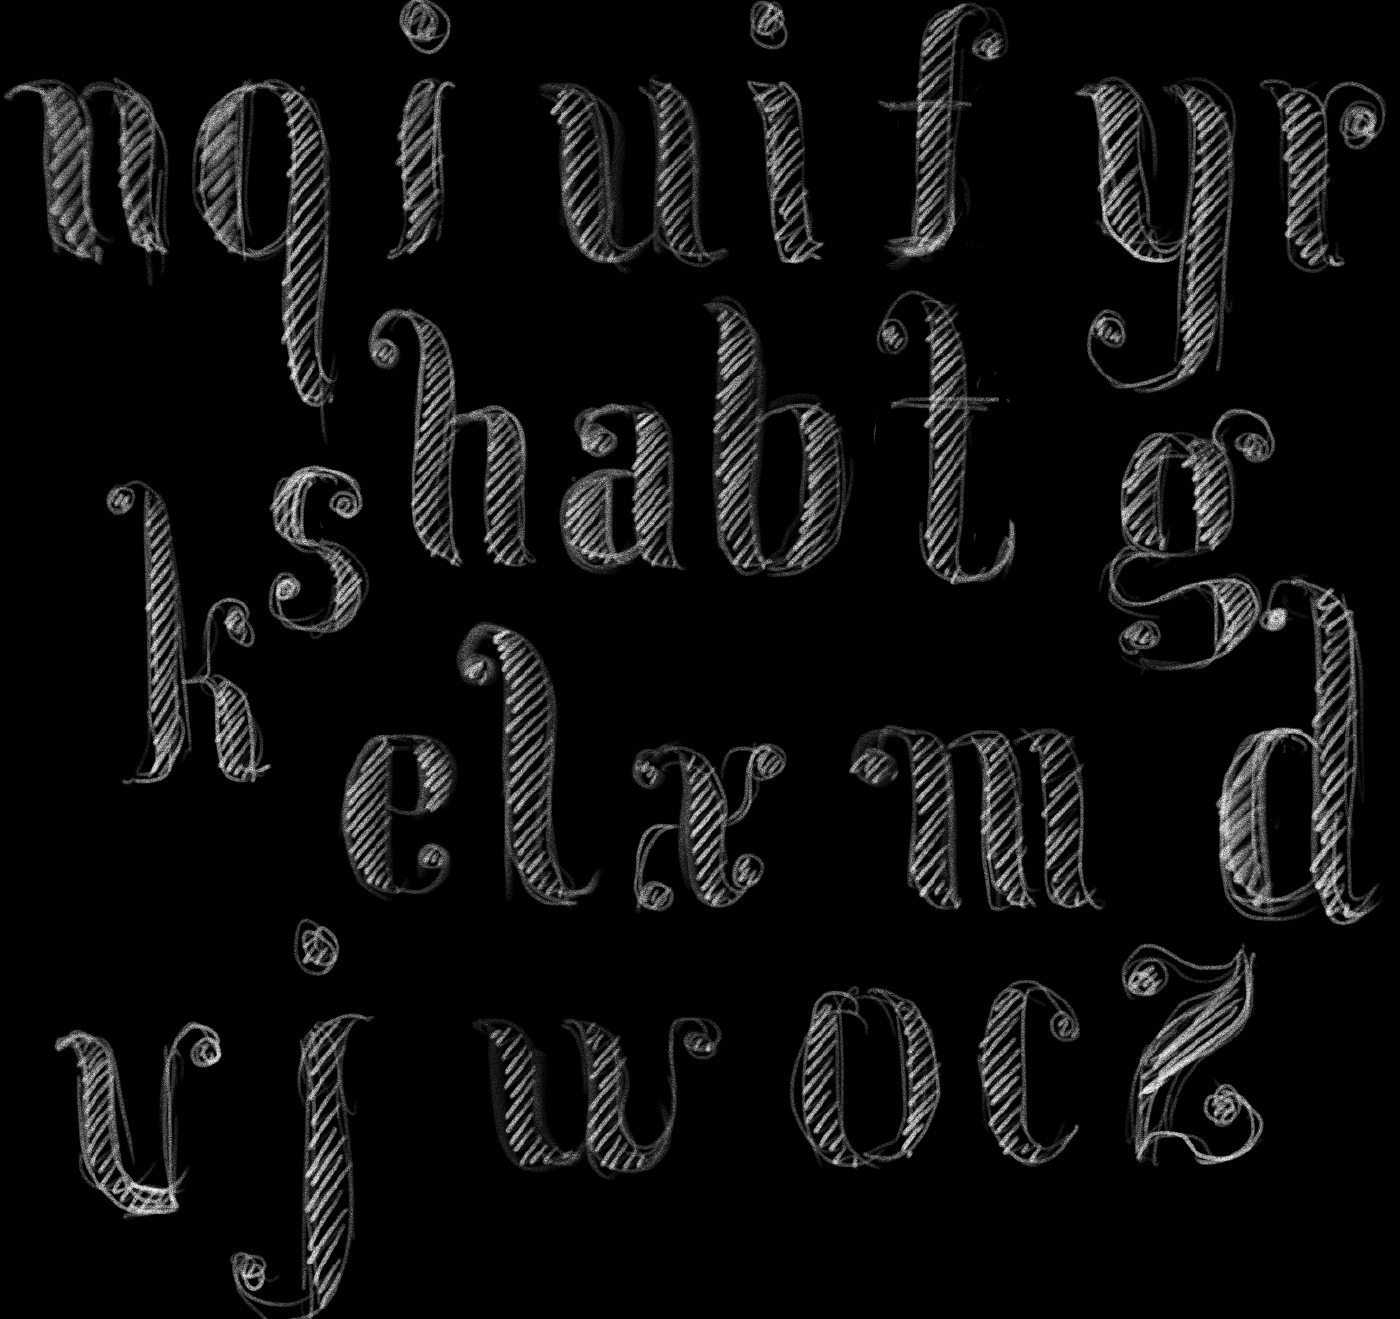 n q i u i f y r
h a b t g
k s
e l x m d
v j w o c z